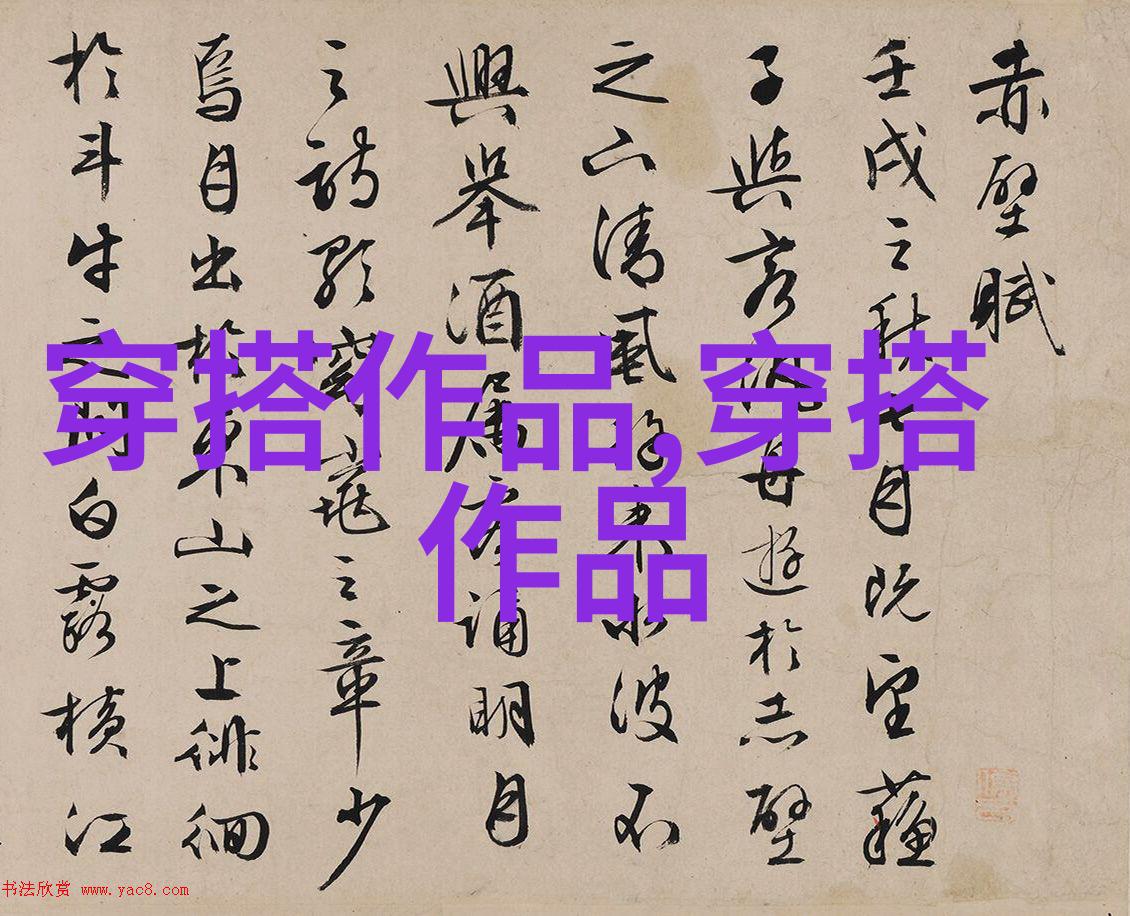 赤壁賦
壬戌之秋七月既望蘇
子與客泛舟遊於赤壁
之下清風徐來水波不
興舉酒屬客誦明月
之詩歌窈窕之章少
焉月出於東山之上徘徊
於斗牛之間白露橫江
穿搭作品,穿搭
作品
书法欣赏 www.yac8.com